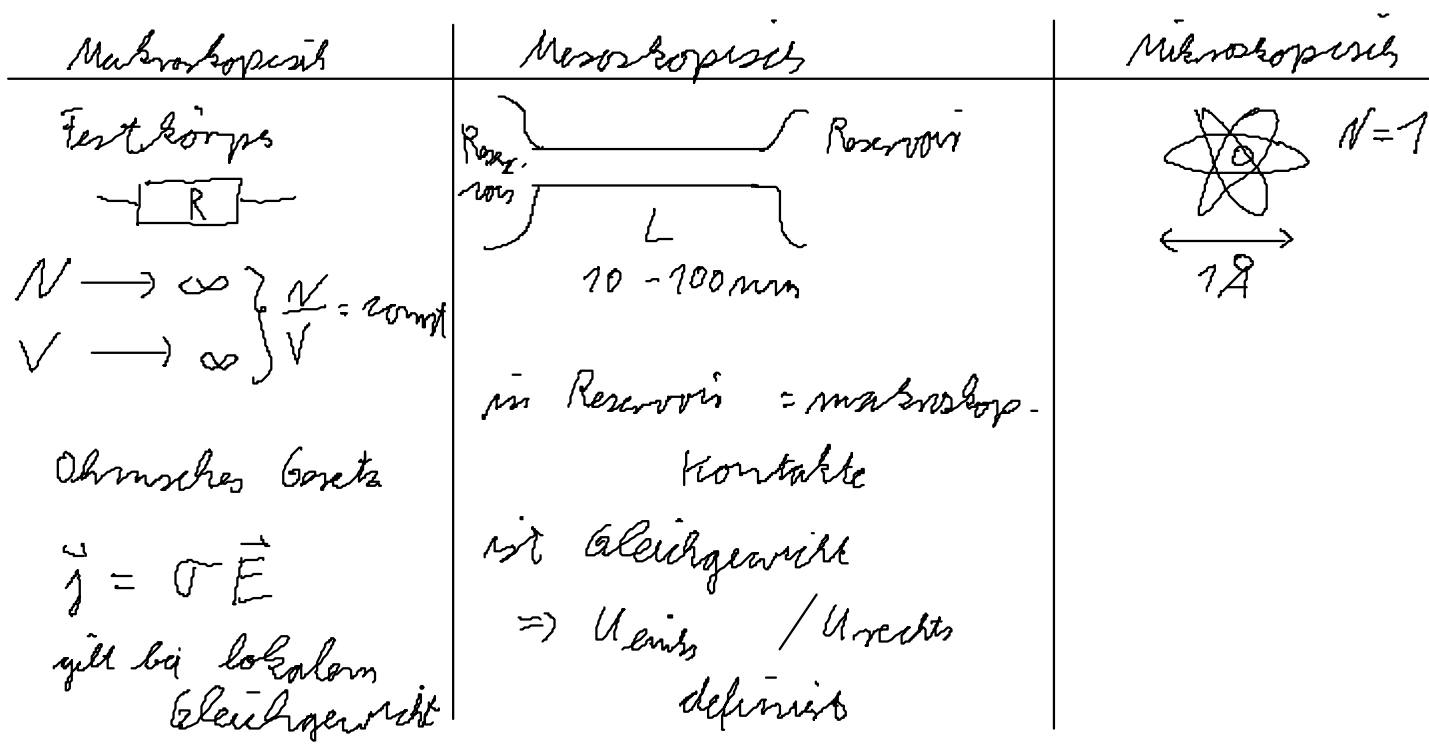 Makroskopisch
Festkörper
R
N → ∞
V → ∞
N/V = const
Ohmsches Gesetz
j⃗ = σ E⃗
gilt bei lokalem
Gleichgewicht
Mesoskopisch
Reser-
voir
Reservoir
L
10 - 100 nm
in Reservoir = makroskop.
Kontakte
ist Gleichgewicht
⇒ U links / U rechts
definiert
Mikroskopisch
N = 1
1 Å